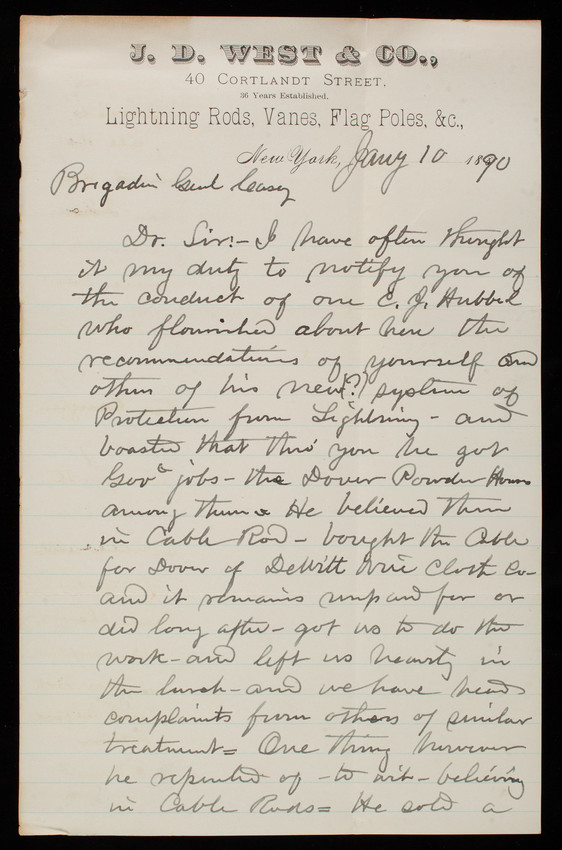 J. D. WEST & CO.,
40 CORTLANDT STREET,
36 Years Established.
Lightning Rods, Vanes, Flag Poles, &c.,
New York, Jany 10 1890
Brigadier Genl Casey
Dr. Sir:- I have often thought
it my duty to notify you of
the conduct of one E. J. Hubbel
who flourished about here the
recommendations of yourself and
others of his new(?) system of
Protection from Lightning - and
boasted that thro' you he got
Govt jobs - the Dover Powder House
among them - He believed then
in Cable Rod - bought the Cable
for Dover of DeWitt Wire Cloth Co -
and it remains unpaid for or
did long after - got us to do the
work - and left us heavily in
the lurch - and we have heard
complaints from others of similar
treatment = One thing however
he repented of - to wit - believing
in Cable Rods = He sold a